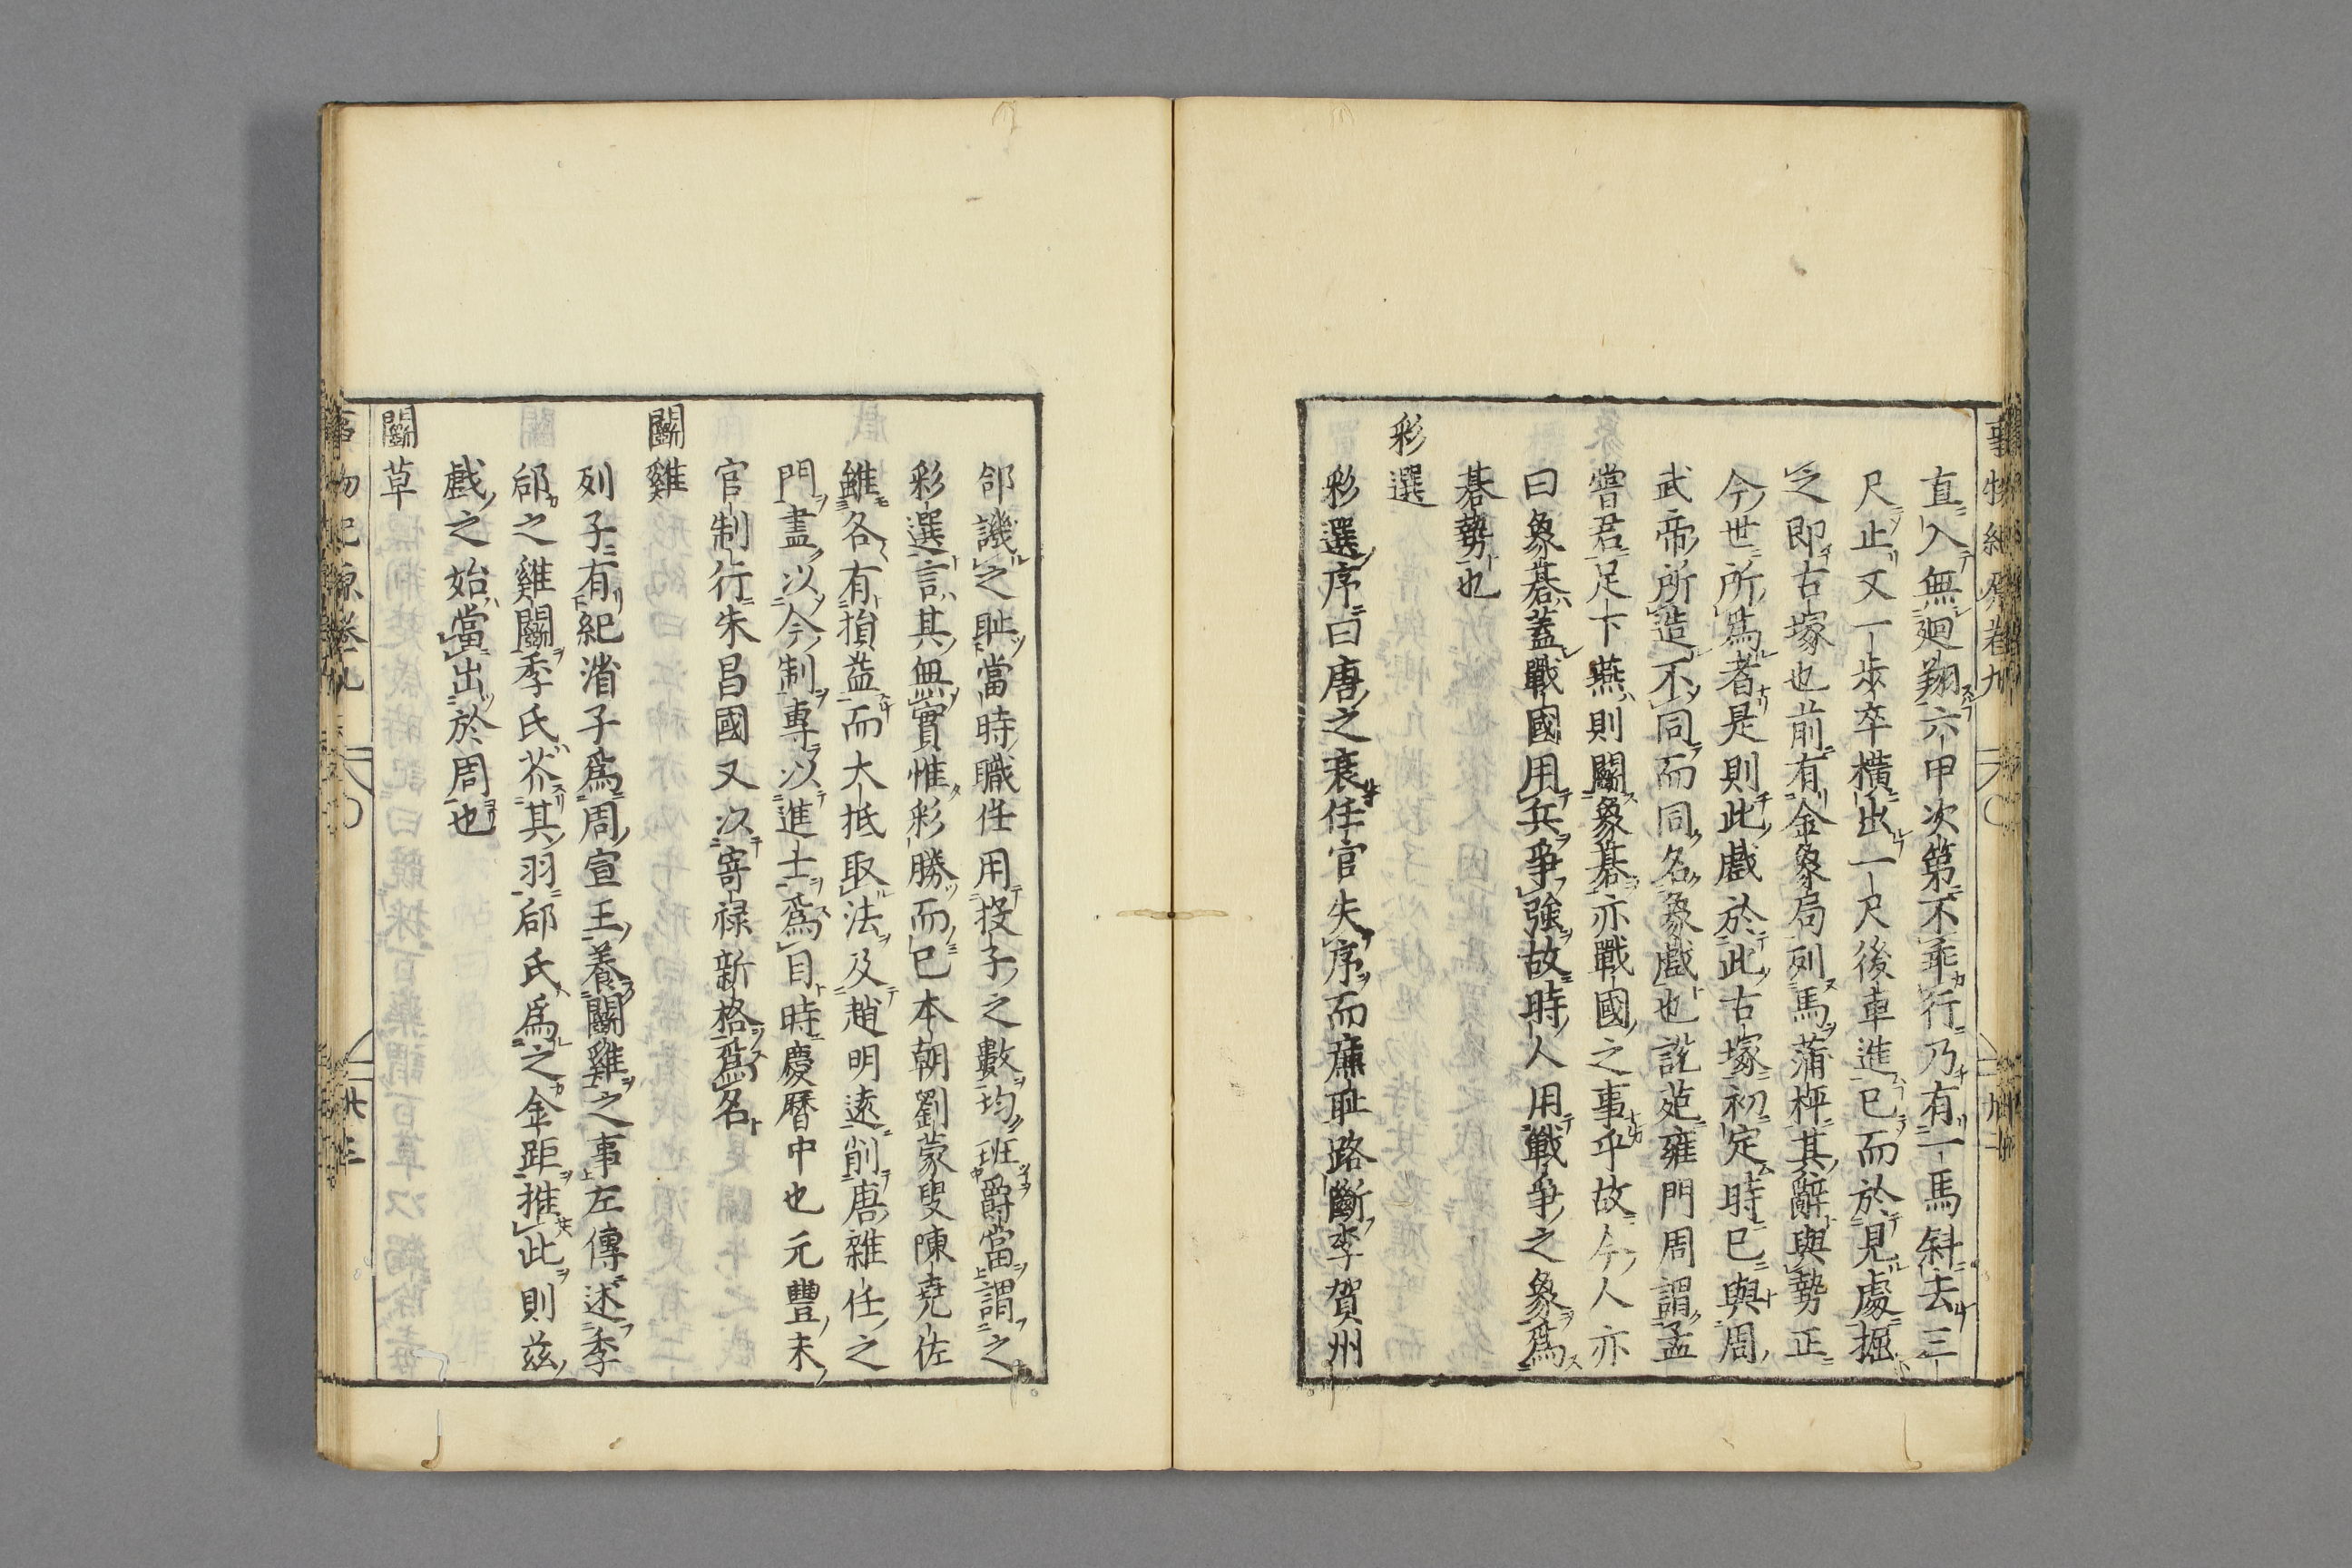 直入無廻翔六甲次第不乖行乃有一馬斜去三
尺止又一歩卒横出一尺後車進已而於見處掘
之即古塚也前有金象局列馬蒲枰其辭與勢正
今世所為者是則此戲於此古塚初定時已與周
武帝所造不同而同名象戲也說苑雍門周謂孟
嘗君足下燕則鬬象棊亦戰國之事乎故今人亦
曰象棊蓋戰國用兵爭強故時人用戰爭之象為
棊勢也
彩選
彩選序曰唐之衰任官失序而廉耻路斷李賀州
郃譏之耻當時職任用投子之數均班爵當謂之
彩選言其無實惟彩勝而已本朝劉蒙叟陳堯佐
雖各有損益而大抵取法及趙明遠削唐雜任之
門盡以今制專以進士為目時慶曆中也元豐末
官制行朱昌國又以寄禄新格為名
鬬雞
列子有紀渻子為周宣王養鬬雞之事左傳述季
郈之雞鬬季氏芥其羽郈氏為之金距推此則茲
戲之始當出於周也
鬬草
事物紀原卷九